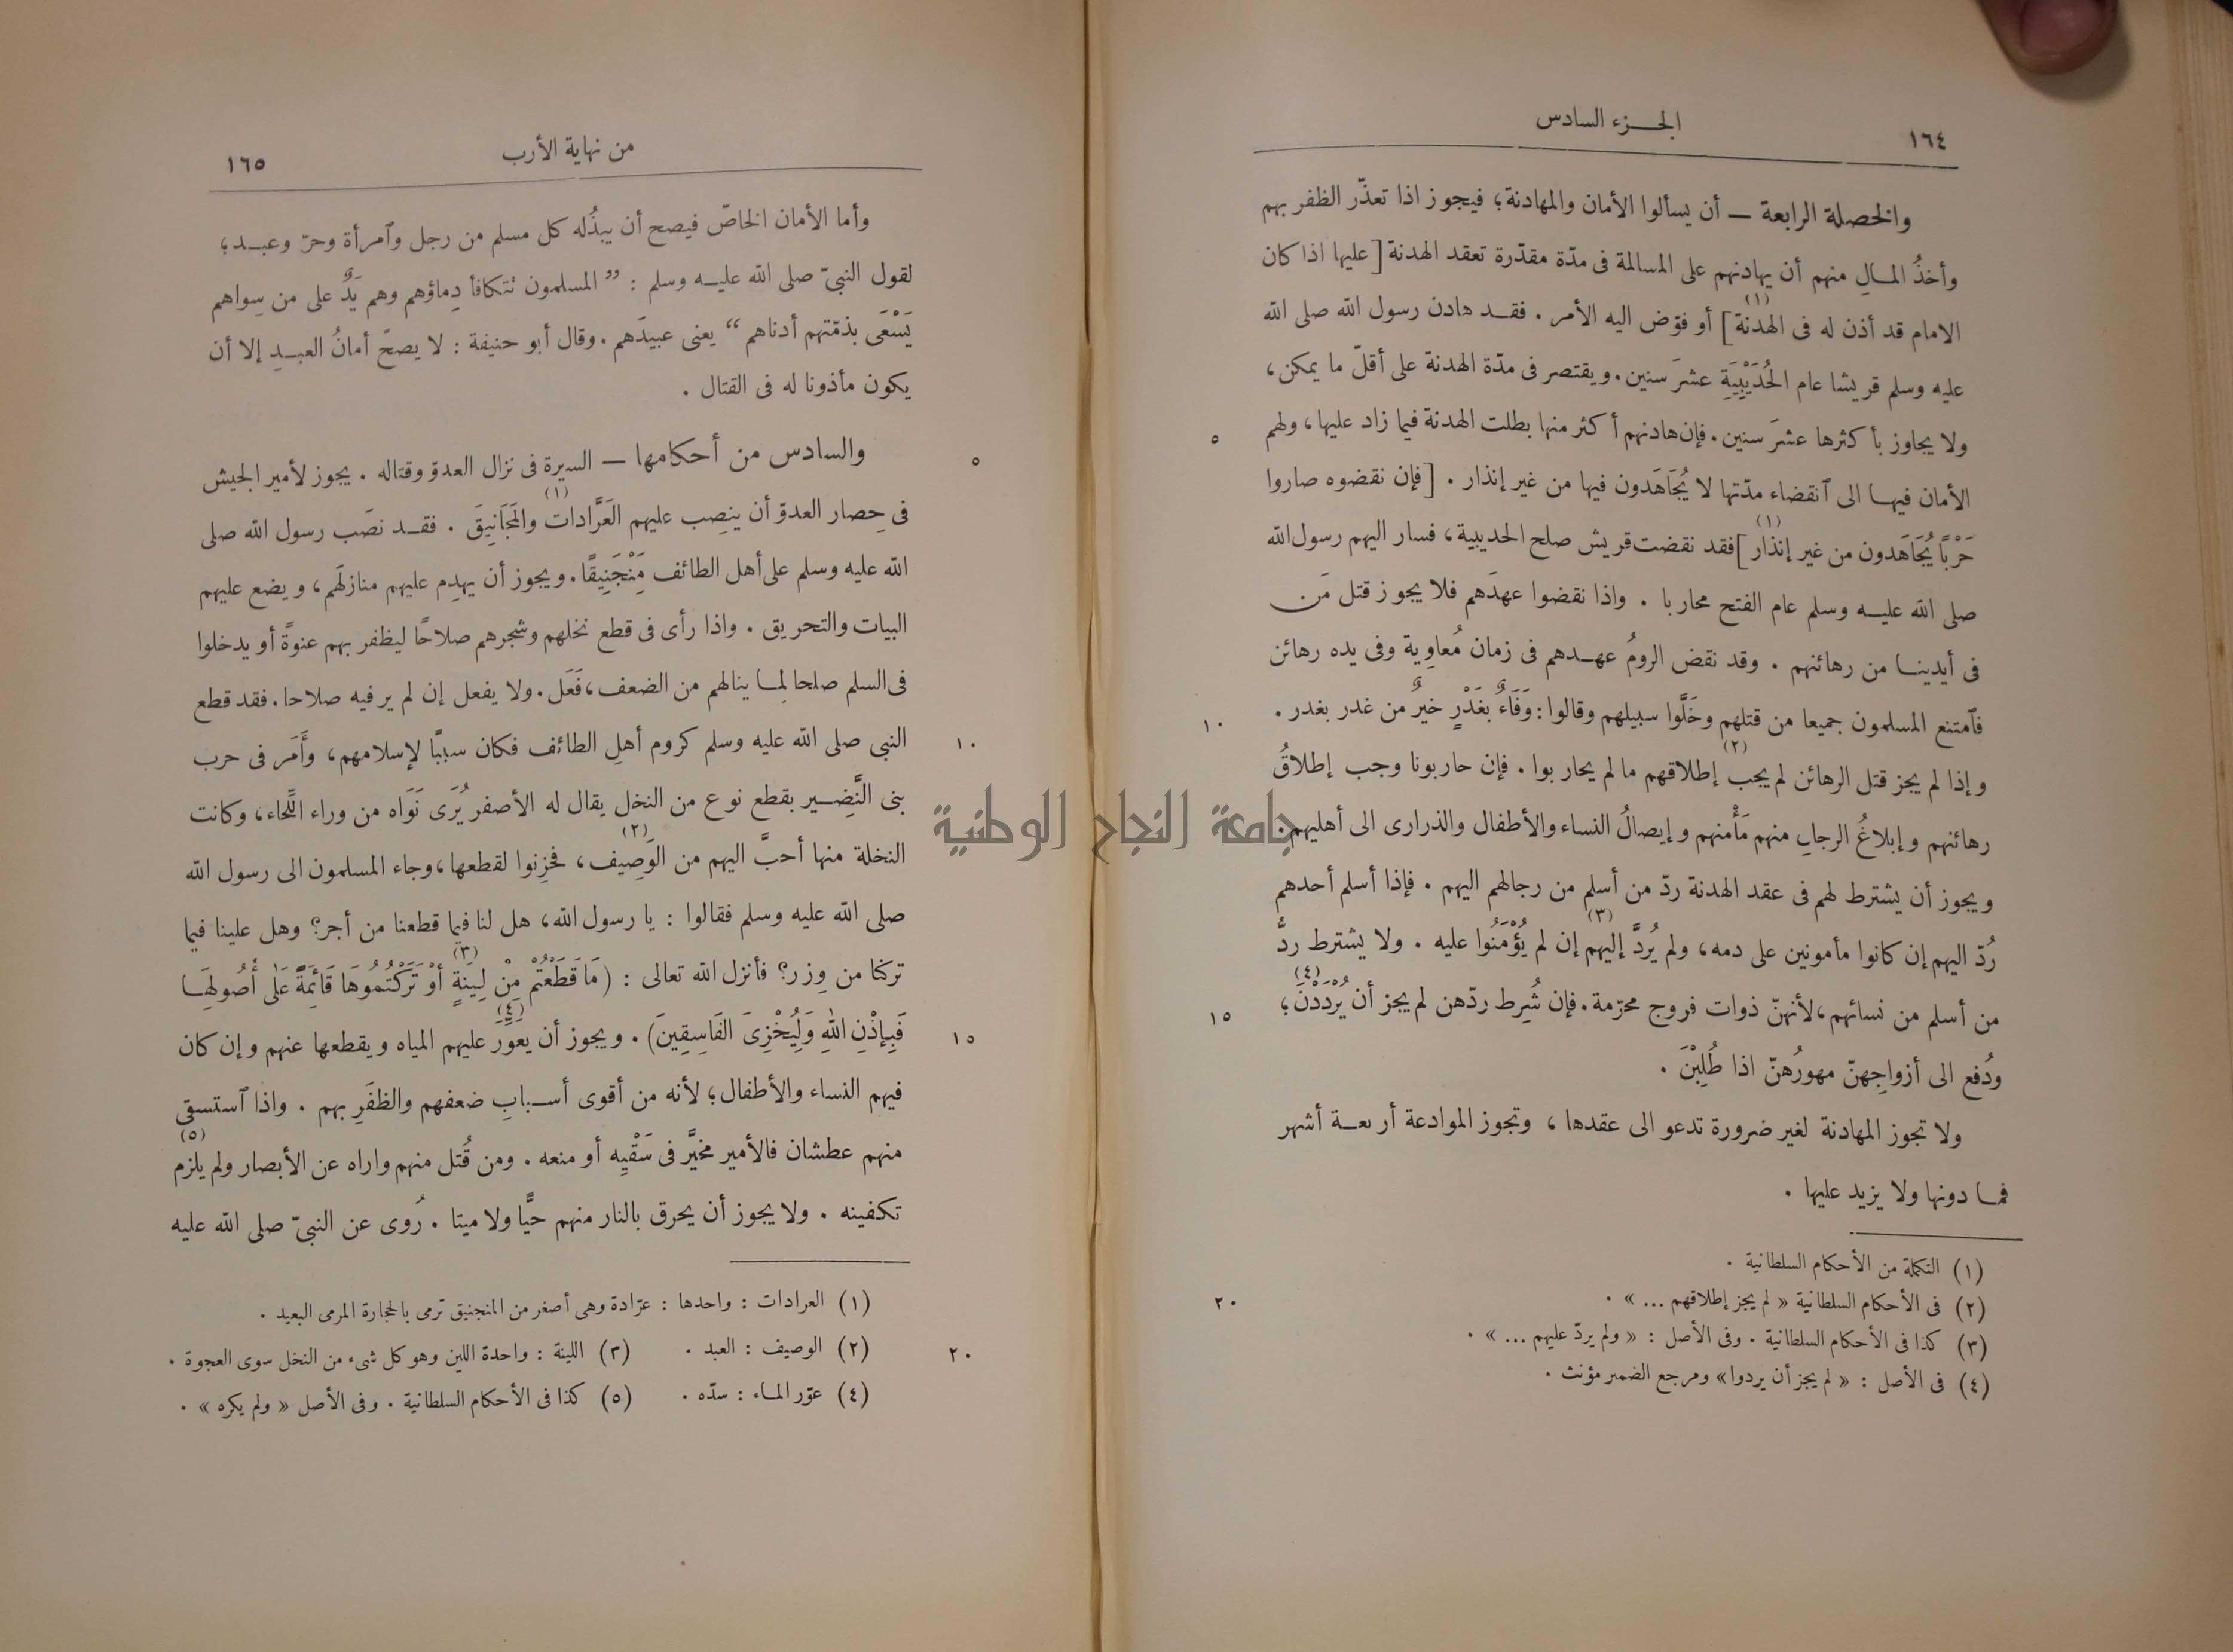 ١٦٤
الجزء السادس
والخصلة الرابعة — أن يسألوا الأمان والمهادنة؛ فيجوز اذا تعذّر الظفر بهم
وأخذُ المالِ منهم أن يهادنهم على المسالمة فى مدّة مقدّرة تعقد الهدنة [عليها اذا كان
الامام قد أذن له فى الهدنة](١) أو فوّض اليه الأمر . فقد هادن رسول الله صلى الله
عليه وسلم قريشا عام الحُدَيْبِيَةِ عشرَ سنين . ويقتصر فى مدّة الهدنة على أقلّ ما يمكن،
ولا يجاوز بأكثرها عشرَ سنين . فإن هادنهم أكثر منها بطلت الهدنة فيما زاد عليها، ولهم
٥
الأمان فيها الى ٱنقضاء مدّتها لا يُجَاهَدون فيها من غير إنذار . [فإن نقضوه صاروا
حَرْبًا يُجَاهَدون من غير إنذار](١) فقد نقضت قريش صلح الحديبية، فسار اليهم رسول الله
صلى الله عليه وسلم عام الفتح محاربا . واذا نقضوا عهدَهم فلا يجوز قتل مَن
فى أيدينا من رهائنهم . وقد نقض الرومُ عهدهم فى زمان مُعاوِية وفى يده رهائن
فٱمتنع المسلمون جميعا من قتلهم وخَلَّوا سبيلهم وقالوا : وَفَاءٌ بغَدْرٍ خيرٌ من غدر بغدر .
١٠
وإذا لم يجز قتل الرهائن لم يجب(٢) إطلاقهم ما لم يحاربوا . فإن حاربونا وجب إطلاقُ
رهائنهم وإبلاغُ الرجالِ منهم مَأْمنهم وإيصالُ النساء والأطفال والذرارى الى أهليهم .
ويجوز أن يشترط لهم فى عقد الهدنة ردّ من أسلم من رجالهم اليهم . فإذا أسلم أحدهم
رُدّ اليهم إن كانوا مأمونين على دمه، ولم يُردَّ إليهم(٣) إن لم يُؤْمَنُوا عليه . ولا يشترط ردُّ
من أسلم من نسائهم، لأنهنّ ذوات فروج محرّمة . فإن شُرِط ردّهن لم يجز أن يُرْدَدْنَ(٤)؛
١٥
ودُفع الى أزواجِهنّ مهورُهنّ اذا طُلِبْنَ .
ولا تجوز المهادنة لغير ضرورة تدعو الى عقدها ، وتجوز الموادعة أربعة أشهر
فما دونها ولا يزيد عليها .
(١) التكملة من الأحكام السلطانية .
(٢) فى الأحكام السلطانية « لم يجز إطلاقهم ... » .
٢٠
(٣) كذا فى الأحكام السلطانية . وفى الأصل : « ولم يردّ عليهم ... » .
(٤) فى الأصل : « لم يجز أن يردوا » ومرجع الضمير مؤنث .
من نهاية الأرب
١٦٥
وأما الأمان الخاصّ فيصح أن يبذُله كل مسلم من رجل وٱمرأة وحرّ وعبد؛
لقول النبىّ صلى الله عليه وسلم : ”المسلمون تتكافأ دِماؤهم وهم يَدٌ على من سِواهم
يَسْعَى بذمّتهم أدناهم“ يعنى عبيدَهم . وقال أبو حنيفة : لا يصحّ أمانُ العبدِ إلا أن
يكون مأذونا له فى القتال .
والسادس من أحكامها — السيرة فى نزال العدوّ وقتاله . يجوز لأمير الجيش
٥
فى حِصار العدوّ أن ينصِب عليهم العَرَّادات(١) والمَجَانِيقَ . فقد نصَب رسول الله صلى
الله عليه وسلم على أهل الطائف مَِنْجَنِيقًا . ويجوز أن يهدِم عليهم منازلَهم، ويضع عليهم
البيات والتحريق . واذا رأى فى قطع نخلهم وشجرهم صلاحًا ليظفر بهم عنوةً أو يدخلوا
فى السلم صلحا لِما ينالهم من الضعف، فَعَل . ولا يفعل إن لم ير فيه صلاحا . فقد قطع
النبى صلى الله عليه وسلم كروم أهلِ الطائف فكان سببًا لإسلامهم، وأَمَر فى حرب
١٠
بنى النَّضِير بقطع نوع من النخل يقال له الأصفر يُرَى نَوَاه من وراء اللِّحاء، وكانت
النخلة منها أحبَّ اليهم من الوَصِيف(٢)، فحزِنوا لقطعها، وجاء المسلمون الى رسول الله
صلى الله عليه وسلم فقالوا : يا رسول الله، هل لنا فيما قطعنا من أجر؟ وهل علينا فيما
تركنا من وِزر؟ فأنزل الله تعالى : (مَا قَطَعْتُمْ مِنْ لِينَةٍ(٣) أَوْ تَرَكْتُمُوهَا قَائِمَةً عَلَى أُصُولِهَا
فَبِإِذْنِ اللهِ وَلِيُخْزِىَ الفَاسِقِينَ) . ويجوز أن يعَوِّرَ(٤) عليهم المياه ويقطعها عنهم وإن كان
١٥
فيهم النساء والأطفال؛ لأنه من أقوى أسبابِ ضعفهم والظفَرِ بهم . واذا ٱستسقى
منهم عطشان فالأمير مخيَّر فى سَقْيِه أو منعه . ومن قُتل منهم واراه عن الأبصار ولم يلزم(٥)
تكفينه . ولا يجوز أن يحرق بالنار منهم حيًّا ولا ميتا . رُوى عن النبىّ صلى الله عليه
(١) العرادات : واحدها : عرّادة وهى أصغر من المنجنيق ترمى بالحجارة المرمى البعيد .
(٢) الوصيف : العبد . (٣) اللينة : واحدة اللين وهو كل شىء من النخل سوى العجوة .
٢٠
(٤) عوّر الماء : سدّه . (٥) كذا فى الأحكام السلطانية . وفى الأصل « ولم يكره » .
جامعة النجاح الوطنية